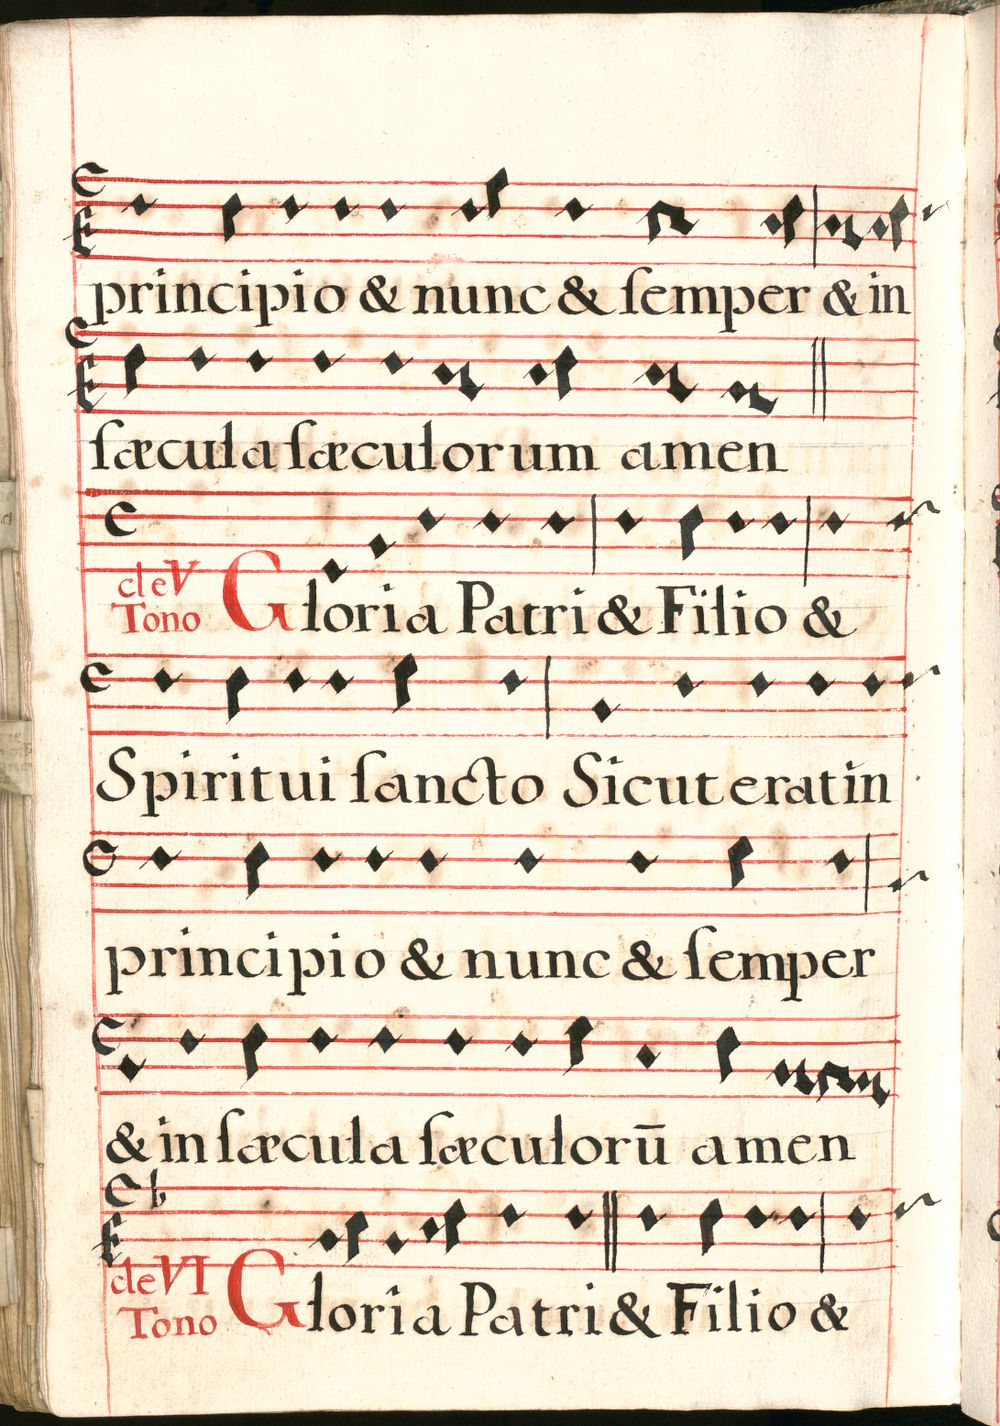 principio & nunc & ſemper & in
ſæcula ſæculorum amen
de V Tono Gloria Patri & Filio &
Spiritui ſancto Sicut erat in
principio & nunc & ſemper
& in ſæcula ſæculorū amen
de VI Tono Gloria Patri & Filio &